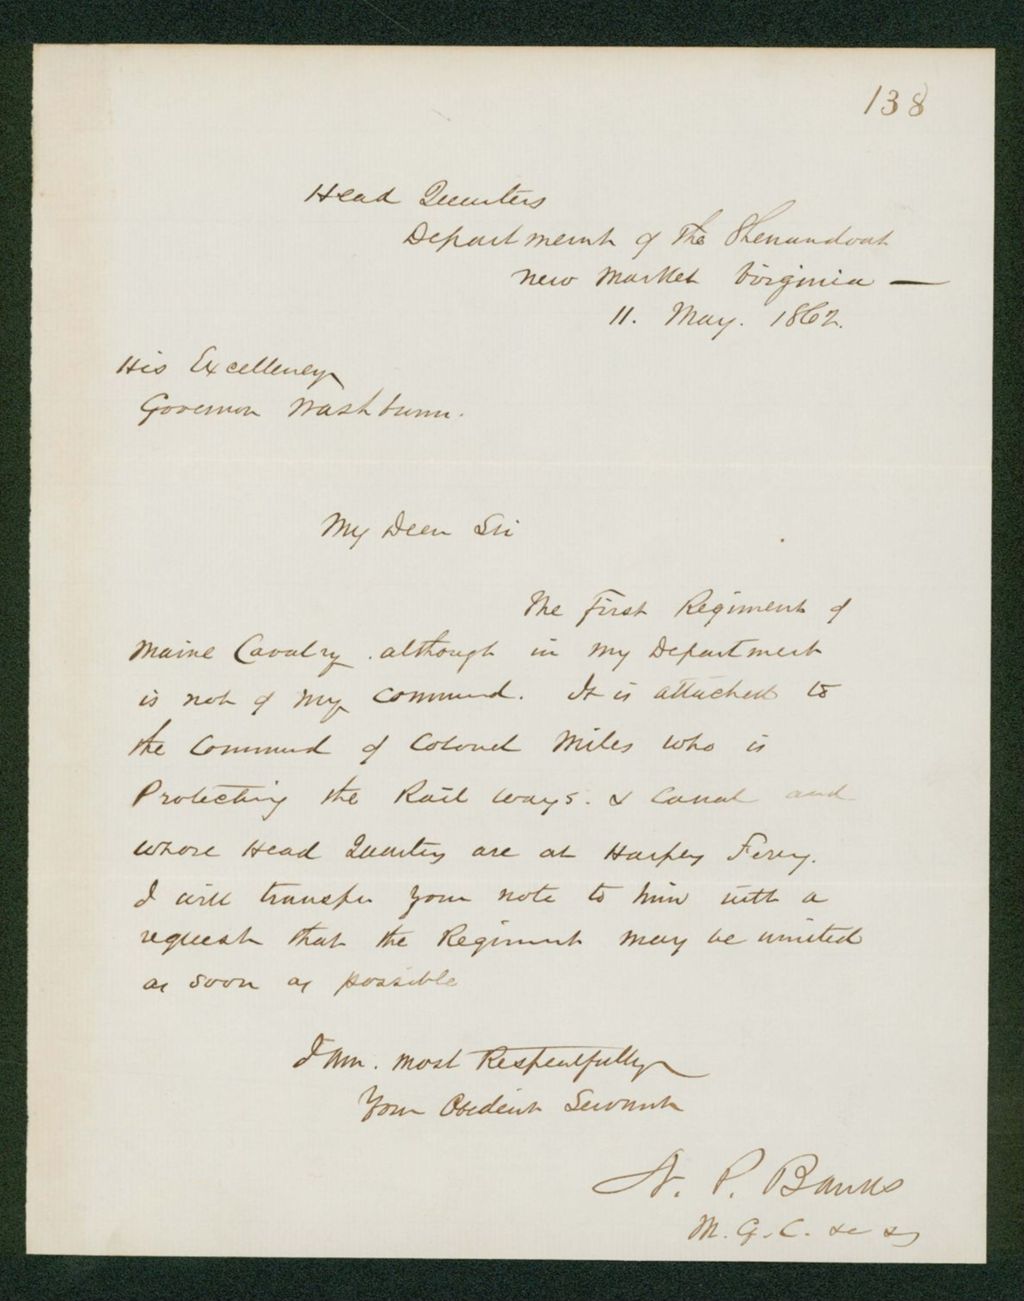 138
Head Quarters
Department of the Shenandoah
New Market Virginia —
11. May. 1862.
His Excellency
Governor Washburn.
My Dear Sir
The First Regiment of
Maine Cavalry. although in my Department
is not of my command. It is attached to
the Command of Colonel Miles who is
Protecting the Rail ways. & Canal and
whose Head Quarters are at Harpers Ferry.
I will transfer your note to him with a
request that the Regiment may be united
as soon as possible
I am. most Respectfully
Your Obedient Servant
N. P. Banks
M. G. C. &c &c